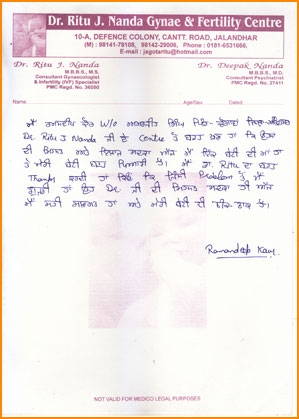 Dr. Ritu J. Nanda Gynae & Fertility Centre
10-A, DEFENCE COLONY, CANTT. ROAD, JALANDHAR
(M) : 98141-78108, 98142-29006, Phone : 0181-6531666,
E-mail : jagotaritu@hotmail.com
Dr. Ritu J. Nanda
M.B.B.S., M.S.
Consultant Gynaecologist
& Infertility (IVF) Specialist
PMC Regd. No. 36050
Dr. Deepak Nanda
M.B.B.S., M.D.
Consultant Psychiatrist
PMC Regd. No. 27411
Name
Age/Sex
Dated
ਮੈਂ ਰਮਨਦੀਪ ਕੌਰ W/o ਅਮਰਜੀਤ ਸਿੰਘ ਪਿੰਡ
Dr. Ritu J Nanda ਜੀ ਦੇ Centre ਤੋਂ ਬਹੁਤ ਖੁਸ਼ ਹਾਂ ਕਿ ਉਹਨਾਂ
ਦੀ ਮਿਹਨਤ ਅਤੇ ਇਲਾਜ ਸਦਕਾ ਅੱਜ ਮੈਂ ਇੱਕ ਬੇਟੀ ਦੀ ਮਾਂ ਹਾਂ
ਤੇ ਮੇਰੀ ਬੇਟੀ ਬਹੁਤ ਪਿਆਰੀ ਹੈ। ਮੈਂ ਡਾ. Ritu ਦਾ ਬਹੁਤ
Thanks ਕਰਦੀ ਹਾਂ ਕਿਉਂ ਕਿ ਜਿੰਨੀ Problem ਤੋਂ ਮੈਂ
ਗੁਜ਼ਰੀ ਹਾਂ ਇਹ Dr. ਜੀ ਦੀ ਮਿਹਨਤ ਸਦਕਾ ਹੀ ਅੱਜ
ਮੈਂ ਸਹੀ ਸਲਾਮਤ ਹਾਂ ਅਤੇ ਮੇਰੀ ਬੇਟੀ ਵੀ ਠੀਕ-ਠਾਕ ਹੈ।
Ramandeep Kaur
NOT VALID FOR MEDICO LEGAL PURPOSES